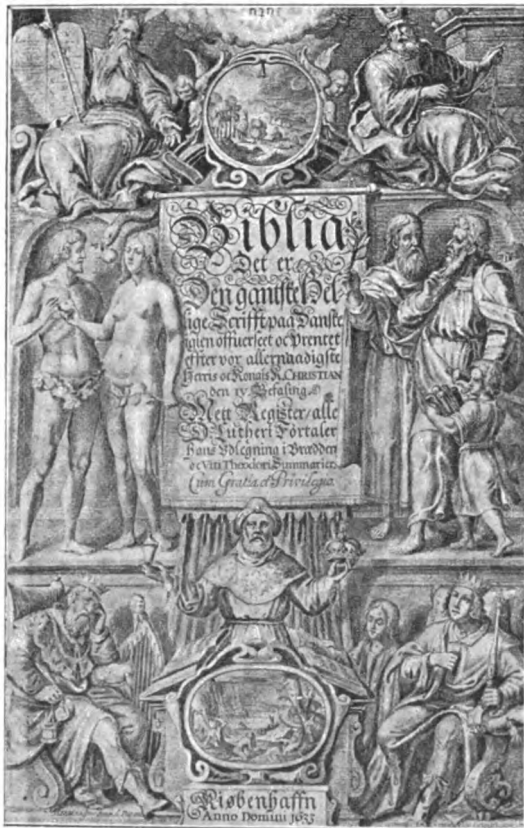 Biblia
Det er
Den gantske Hel-
lige Scrifft paa Danske
igien offuerseet oc Prentet
effter vor allernaadigste
Herris oc Konnings K. CHRISTIAN
den IV Befaling.
Mett Register / alle
D. Lutheri Fortaler
Hans Vdlegning i Brædden
oc Viti Theodori Summarier.
Cum Gratia et Privilegio.
Kiøbenhaffn
Anno Domini 1633